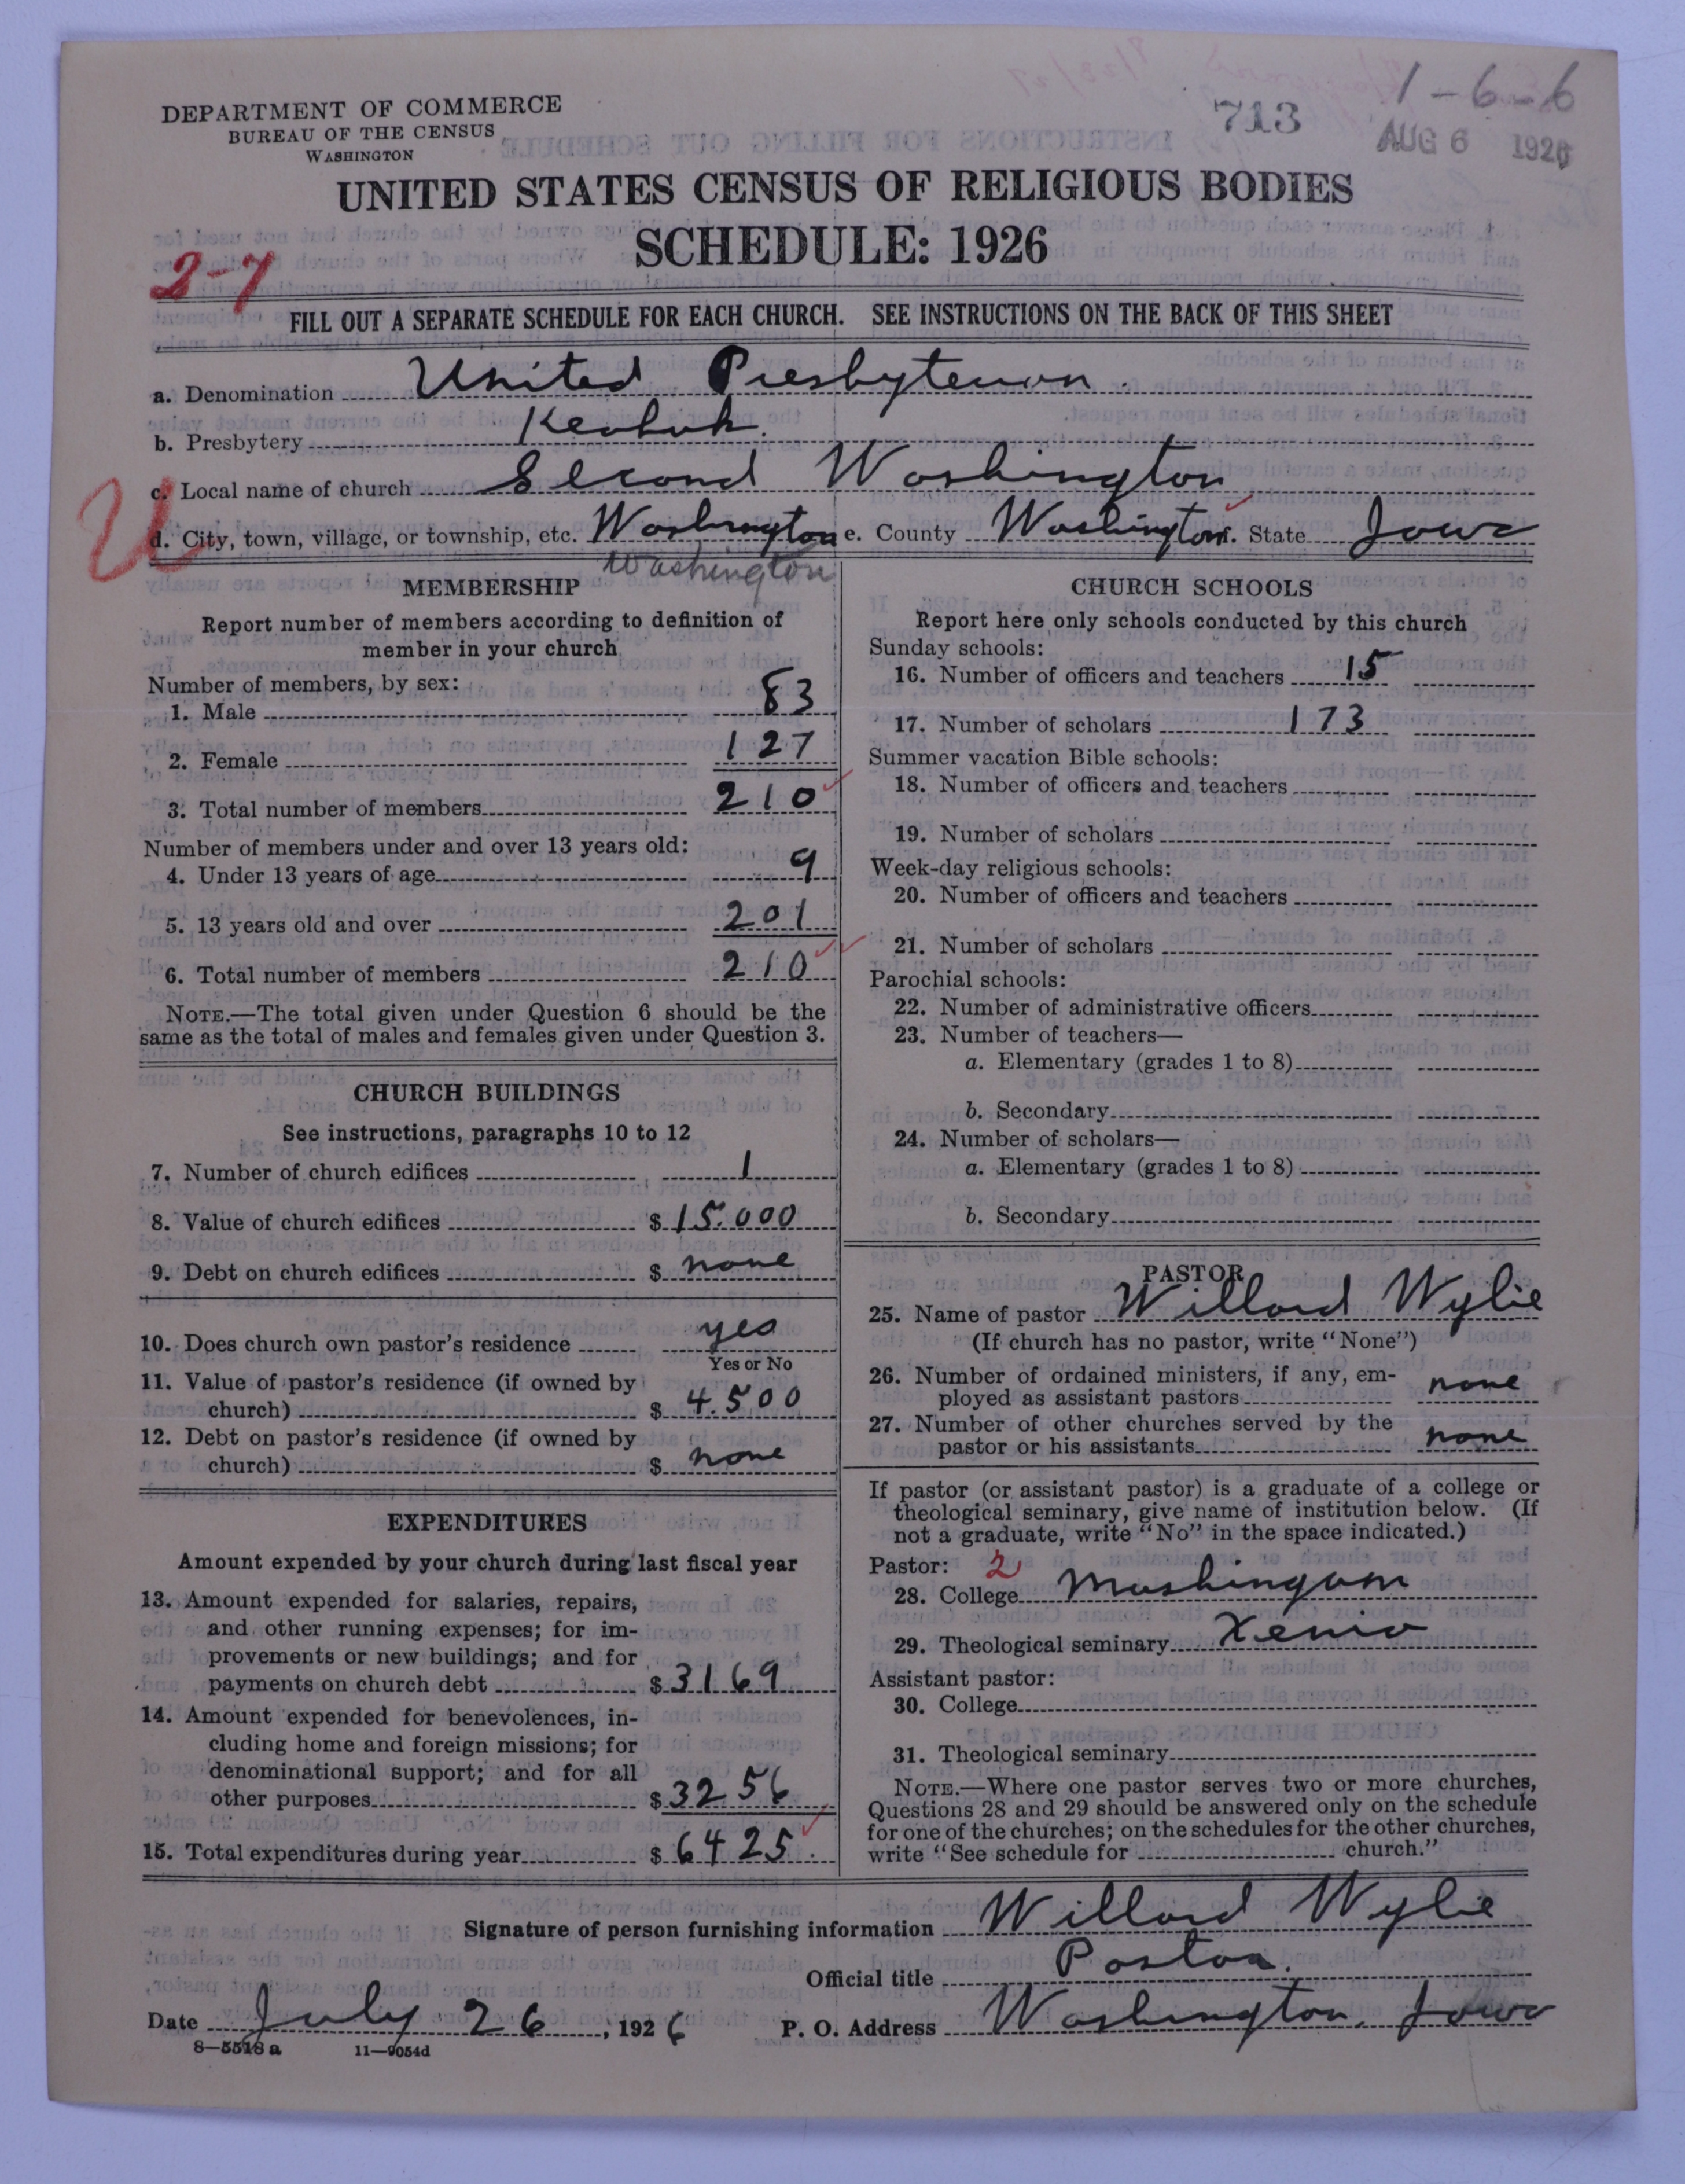 1-6-6
DEPARTMENT OF COMMERCE
BUREAU OF THE CENSUS
WASHINGTON
713
AUG 6 1926
UNITED STATES CENSUS OF RELIGIOUS BODIES
SCHEDULE: 1926
2-7
FILL OUT A SEPARATE SCHEDULE FOR EACH CHURCH. SEE INSTRUCTIONS ON THE BACK OF THIS SHEET
a. Denomination United Presbyterian.
b. Presbytery Keokuk.
c. Local name of church Second Washington
U
d. City, town, village, or township, etc. Washington e. County Washington f. State Iowa
Washington
MEMBERSHIP
Report number of members according to definition of
member in your church
Number of members, by sex:
1. Male 83
2. Female 127
3. Total number of members 210
Number of members under and over 13 years old:
4. Under 13 years of age 9
5. 13 years old and over 201
6. Total number of members 210
NOTE.—The total given under Question 6 should be the
same as the total of males and females given under Question 3.
CHURCH BUILDINGS
See instructions, paragraphs 10 to 12
7. Number of church edifices 1
8. Value of church edifices $ 15.000
9. Debt on church edifices $ none
10. Does church own pastor's residence yes
Yes or No
11. Value of pastor's residence (if owned by
church) $ 4.500
12. Debt on pastor's residence (if owned by
church) $ none
EXPENDITURES
Amount expended by your church during last fiscal year
13. Amount expended for salaries, repairs,
and other running expenses; for im-
provements or new buildings; and for
payments on church debt $ 3169
14. Amount expended for benevolences, in-
cluding home and foreign missions; for
denominational support; and for all
other purposes $ 3256
15. Total expenditures during year $ 6425.
CHURCH SCHOOLS
Report here only schools conducted by this church
Sunday schools:
16. Number of officers and teachers 15
17. Number of scholars 173
Summer vacation Bible schools:
18. Number of officers and teachers
19. Number of scholars
Week-day religious schools:
20. Number of officers and teachers
21. Number of scholars
Parochial schools:
22. Number of administrative officers
23. Number of teachers—
a. Elementary (grades 1 to 8)
b. Secondary
24. Number of scholars—
a. Elementary (grades 1 to 8)
b. Secondary
PASTOR
25. Name of pastor Willard Wylie
(If church has no pastor, write "None")
26. Number of ordained ministers, if any, em-
ployed as assistant pastors none
27. Number of other churches served by the
pastor or his assistants none
If pastor (or assistant pastor) is a graduate of a college or
theological seminary, give name of institution below. (If
not a graduate, write "No" in the space indicated.)
Pastor: 2
28. College Muskingum
29. Theological seminary Xenia
Assistant pastor:
30. College
31. Theological seminary
NOTE.—Where one pastor serves two or more churches,
Questions 28 and 29 should be answered only on the schedule
for one of the churches; on the schedules for the other churches,
write "See schedule for church."
Signature of person furnishing information Willard Wylie
Official title Pastor.
Date July 26, 1926 P. O. Address Washington, Iowa
8—5518 a 11—9054d